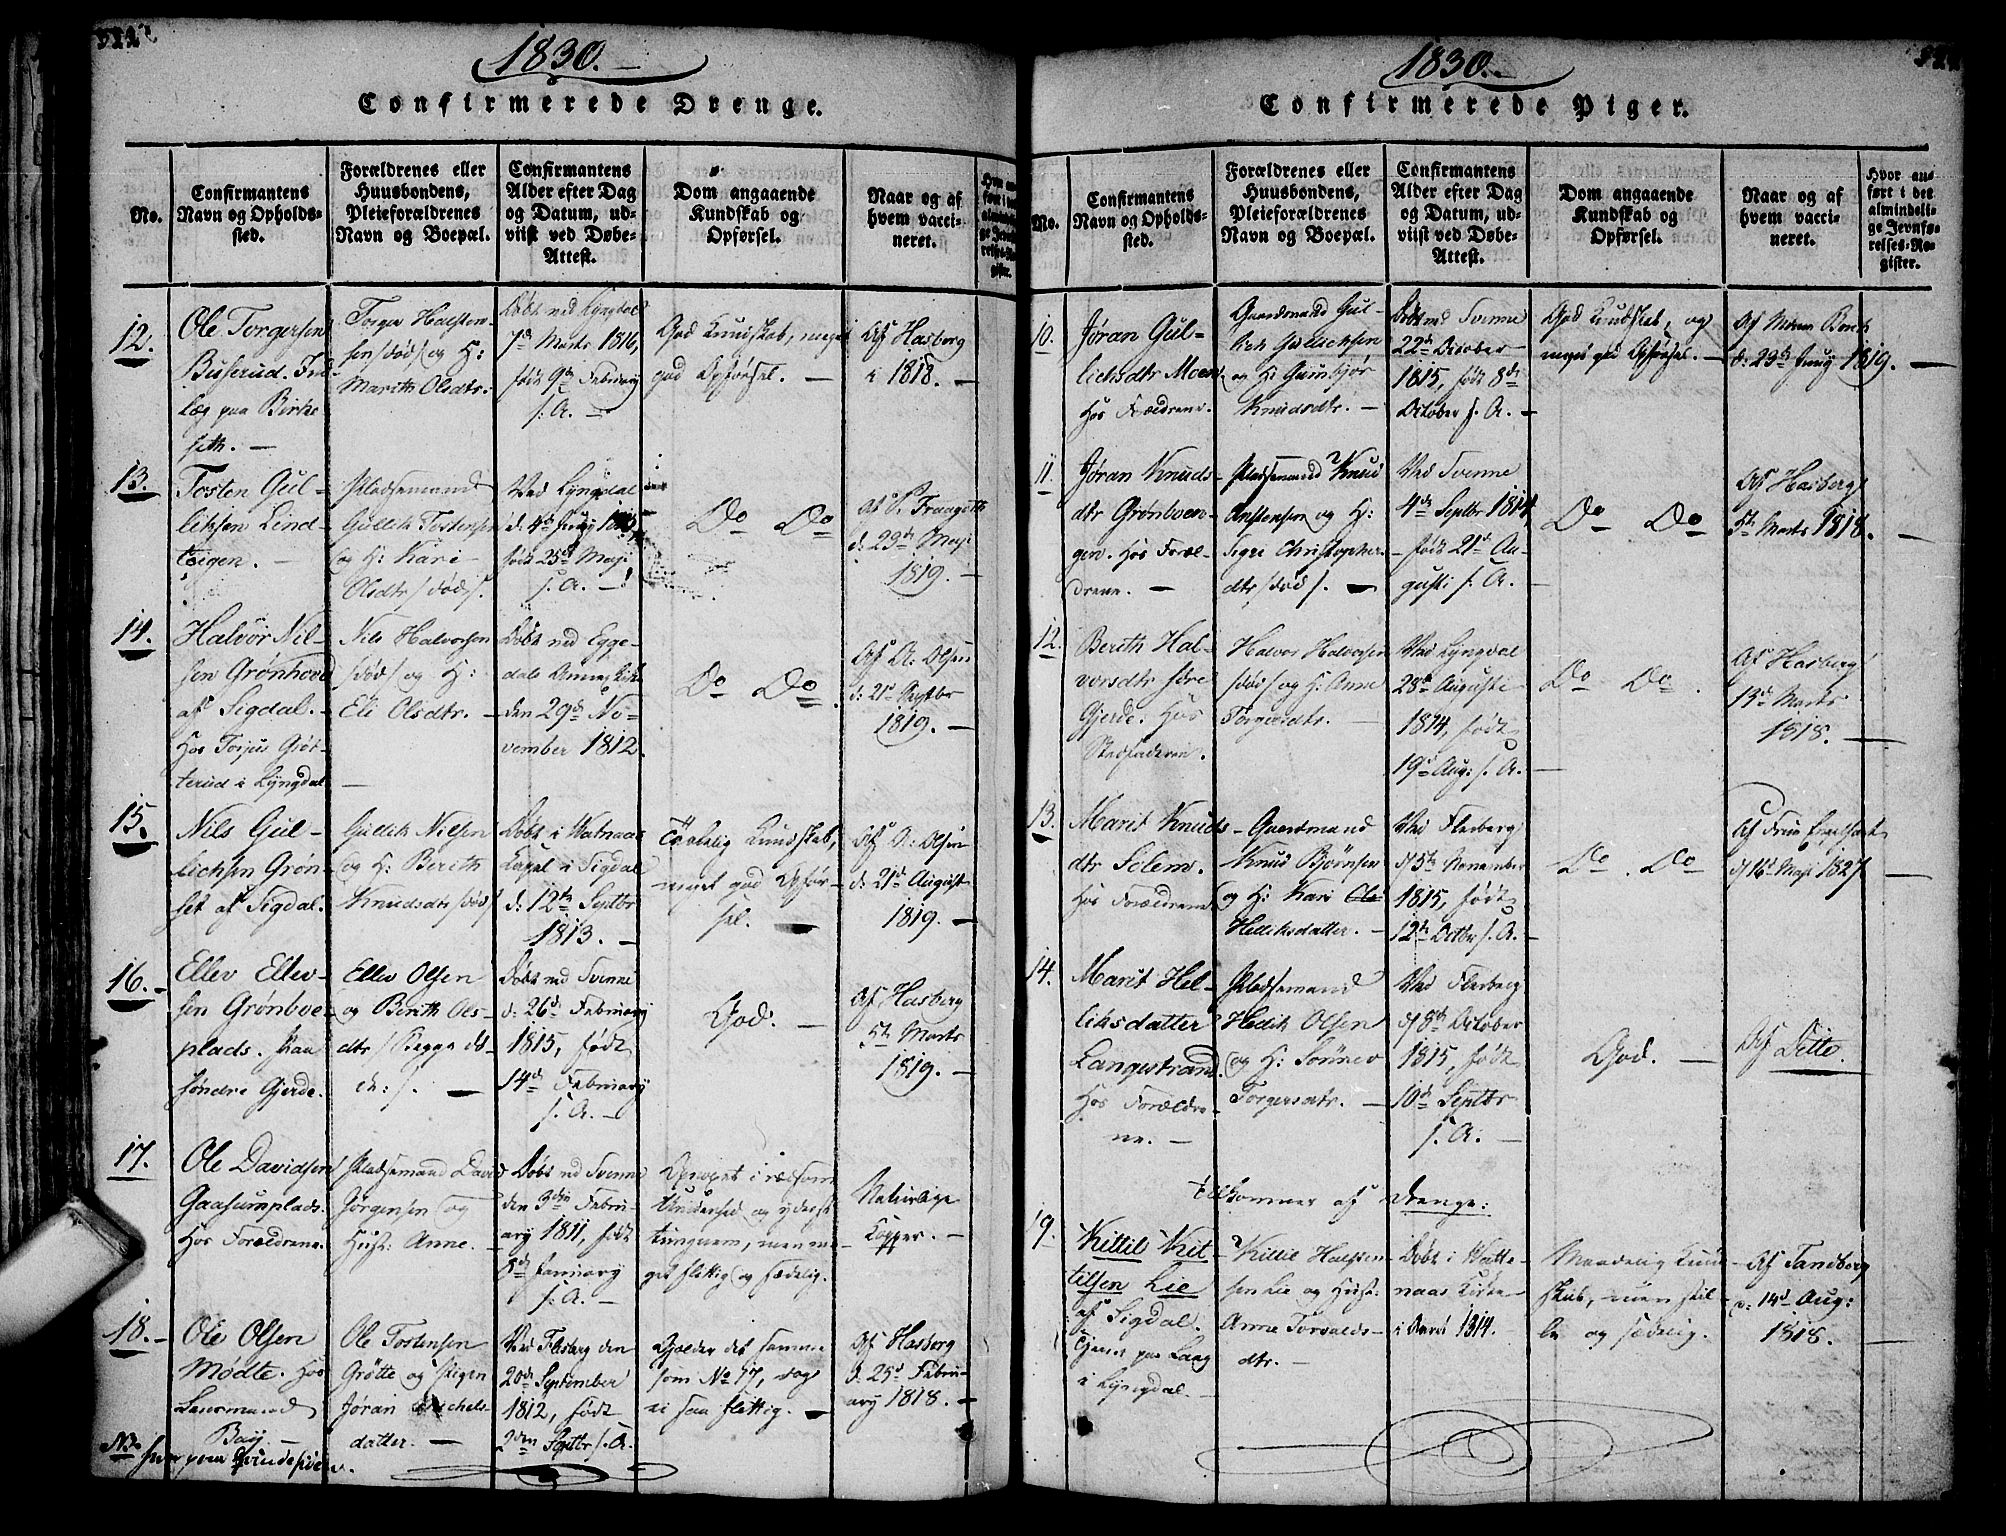 1830.
Confirmerede Drenge.
No.
Confirmantens
Navn og Opholds-
sted.
Forældrenes eller
Huusbondens,
Pleieforældrenes
Navn og Boepæl.
Confirmantens
Alder efter Dag
og Datum, ud-
viist ved Døbe-
Attest.
Dom angaaende
Kundskab og
Opførsel.
Naar og af
hvem vacci-
neret.
12.
Ole Torgersen
Buserud. Ind-
læg paa Birke-
seth. —
Torger Halsten-
sen /død/ og H:
Marith Olsdtr:
Døbt ved Lyngdal
7de Marts 1816,
født 9de Februarij
s. A. —
God Kundskab, meget
god Opførsel. —
Af Hasberg
i 1818. —
13.
Tosten Gul-
liksen Lind-
teigen. —
Pladsemand
Gullik Tostensen
og H: Kari
Olsdtr /død/.
Ved Lyngdal
født 25de Maji
s. A. —
Do Do
d: 23de Maji
1819. —
14.
Halvor Nil-
sen Grønhovd
af Sigdal. —
Hos Torjus Grøt-
terud i Lyngdal
Nils Halvorsen
/død/ og H:
Eli Olsdtr. —
Døbt ved Egge-
dals Annexkirke
den 29de No-
vember 1812.
Do Do.
Af A: Olsen
d: 21de Septbr
1819. —
15.
Nils Gul-
lichsen Grøn-
set af Sigdal.
Gullik Nilsen
og H: Berith
Knudsdtr /død/
Døbt i Watnaas
Capel i Sigdal
d: 12te Septbr
1813. —
Taalelig Kundskab,
meget god Opfør-
sel. —
Af A: Olsen
d: 21de August
1819. —
16. -
Ellev Ellev-
sen Grønboe-
plads. paa
søndre Gjerde.
Ellev Olsen
og Berith Ols-
dtr /Begge dø-
de:/. —
Døbt ved Svenne
d: 26de Februarij
1815, født
14de Februarij
s. A. —
God. —
Af Hasberg
5te Marts
1819. —
17.
Ole Davidsen
Gaasumplads.
Hos Forældrene.
Pladsemand David
Jørgensen og
Hust: Anne. —
Døbt ved Svenne
den 3die Febru-
arij 1811, født
s. A. —
Opvoxet i
Uvidenhed og yderst
tungnem, men me-
get flittig og sædelig.
Naturlige
Kopper. —
18. -
Ole Olsen
Mødte. Hos
Lensmand
Baij —
Ole Tostensen
Grøtte og Pigen
Jøran Michels-
datter. —
Ved Flesberg den
20de September
1812, født
2den Septbr s. A.
Gjelder det samme
som No 17, dog
ei saa flittig. —
Af Hasberg
d. 25de Febru-
arij 1818. —
1830. -
Confirmerede Piger.
No.
Confirmantens
Navn og Opholds-
sted.
Forældrenes eller
Huusbondens,
Pleieforældrenes
Navn og Boepæl.
Confirmantens
Alder efter Dag
og Datum, ud-
viist ved Døbe-
Attest.
Dom angaaende
Kundskab og
Opførsel.
Naar og af
hvem vacci-
neret.
Hvor an-
ført i det
almindeli-
ge Jevnfø-
relses-Re-
gister.
10.
Jøran Gul-
lichsdtr Moen.
Hos Forældrene.
Gaardmand Gul-
lich Gulichsen
og H: Gunbjør
Knudsdtr. —
Døbt ved Svenne
22de October
1815, født 8de
October s. A. —
God Kundskab, og
meget god Opførsel. —
1819. —
11.
Jøran Knuds-
dtr Grønboen-
gen. Hos Foræl-
drene. —
Pladsemand Knud
Anstensen og H:
Sigri Christopher-
dtr, /død/. —
Ved Svenne
4de Septbr 1814,
født 21de Au-
gusti s. A. —
Do Do
Af Hasberg
5te Marts 1818. —
12.
Berith Hal-
vorsdtr søre
Gjerde. Hos
Stedfaderen.
Halvor Halvorsen
/død/ og H: Anne
Torgersdtr. —
Ved Lyngdal
28de Augusti
1814, født
19de Aug: s. A. —
Do Do.
Af Hasberg
13de Marts
1818. —
13.
Marit Knuds-
dtr Solem.
Hos Forældrene
Gaardmand
Knud Bjørnsen
og H: Kari Ole
Hediksdatter. —
Ved Flesberg
d. 5te November
1815, født
12te Octbr s. A. —
Do. Do
d. 16de Maji 1827 —
14.
Marit Hel-
liksdatter
Langestrand.
Hos Forældre-
ne. —
Pladsemand
Hedik Olsen
og H: Sønnev
Torgersdtr. —
Ved Flesberg
d. 8de October
1815, født
10de Septbr
s. A. —
God. —
Af Ditto.
Tilkommer af Drenge:
19.
Kittil Kit-
tilsen Lie
af Sigdal.
Tjener paa Laag
i Lyngdal.
Kittil Halsten-
sen Lie og Hust:
Anne Torvalds-
dtr. —
Døbt i Watte-
naas Kirke
i Aaret 1814.
Maadelig Kund-
skab, men stil-
le og sædelig.
Af Tandberg
d: 14de Aug:
1818. —